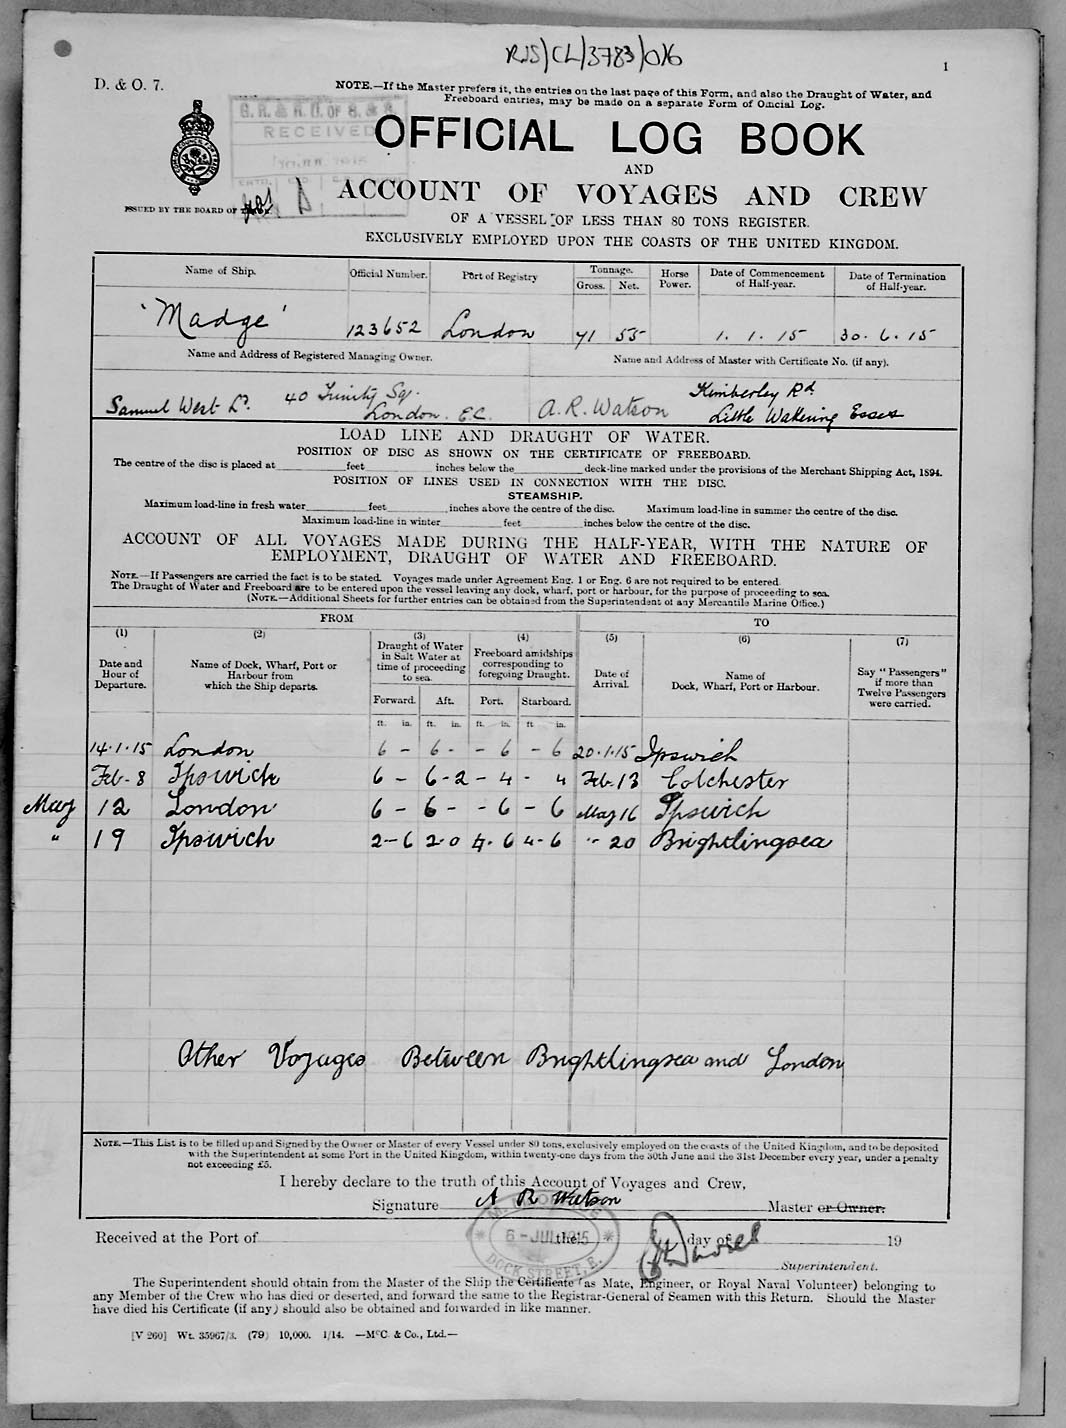 RSS/CL/3783/016
1
D. & O. 7.
NOTE.—If the Master prefers it, the entries on the last page of this Form, and also the Draught of Water, and
Freeboard entries, may be made on a separate Form of Official Log.
G. R. & R. O. OF S. & S.
RECEIVED
OFFICIAL LOG BOOK
AND
ACCOUNT OF VOYAGES AND CREW
ISSUED BY THE BOARD OF
OF A VESSEL OF LESS THAN 80 TONS REGISTER.
EXCLUSIVELY EMPLOYED UPON THE COASTS OF THE UNITED KINGDOM.
Name of Ship. Official Number. Port of Registry Tonnage. Gross. Net. Horse Power. Date of Commencement of Half-year. Date of Termination of Half-year.
'Madge' 123652 London 71 55 1. 1. 15 30. 6. 15
Name and Address of Registered Managing Owner. Name and Address of Master with Certificate No. (if any).
Samuel West Ld. 40 Trinity Sq. London. E.C. A. R. Watson Kimberley Rd. Little Wakering Essex
LOAD LINE AND DRAUGHT OF WATER.
POSITION OF DISC AS SHOWN ON THE CERTIFICATE OF FREEBOARD.
The centre of the disc is placed at feet inches below the deck-line marked under the provisions of the Merchant Shipping Act, 1894.
POSITION OF LINES USED IN CONNECTION WITH THE DISC.
STEAMSHIP.
Maximum load-line in fresh water feet inches above the centre of the disc. Maximum load-line in summer the centre of the disc.
Maximum load-line in winter feet inches below the centre of the disc.
ACCOUNT OF ALL VOYAGES MADE DURING THE HALF-YEAR, WITH THE NATURE OF
EMPLOYMENT, DRAUGHT OF WATER AND FREEBOARD.
NOTE.—If Passengers are carried the fact is to be stated. Voyages made under Agreement Eng. 1 or Eng. 6 are not required to be entered.
The Draught of Water and Freeboard are to be entered upon the vessel leaving any dock, wharf, port or harbour, for the purpose of proceeding to sea.
(NOTE.—Additional Sheets for further entries can be obtained from the Superintendent of any Mercantile Marine Office.)
FROM TO
(1) (2) (3) (4) (5) (6) (7)
Date and Hour of Departure. Name of Dock, Wharf, Port or Harbour from which the Ship departs. Draught of Water in Salt Water at time of proceeding to sea. Freeboard amidships corresponding to foregoing Draught. Date of Arrival. Name of Dock, Wharf, Port or Harbour. Say "Passengers" if more than Twelve Passengers were carried.
Forward. Aft. Port. Starboard.
ft. in. ft. in. ft. in. ft in.
14.1.15 London 6 - 6 - - 6 - 6 20.1.15 Ipswich
Feb. 8 Ipswich 6 - 6-2 - 4 - 4 Feb. 13 Colchester
May 12 London 6 - 6 - - 6 - 6 May 16 Ipswich
" 19 Ipswich 2-6 2-0 4-6 4-6 " 20 Brightlingsea
Other Voyages Between Brightlingsea and London
NOTE.—This List is to be filled up and Signed by the Owner or Master of every Vessel under 80 tons, exclusively employed on the coasts of the United Kingdom, and to be deposited
with the Superintendent at some Port in the United Kingdom, within twenty-one days from the 30th June and the 31st December every year, under a penalty
not exceeding £5.
I hereby declare to the truth of this Account of Voyages and Crew,
Signature A R Watson Master or Owner.
Received at the Port of the day of 19
6 - JUL 1915
DOCK STREET, E.
Superintendent.
The Superintendent should obtain from the Master of the Ship the Certificate (as Mate, Engineer, or Royal Naval Volunteer) belonging to
any Member of the Crew who has died or deserted, and forward the same to the Registrar-General of Seamen with this Return. Should the Master
have died his Certificate (if any) should also be obtained and forwarded in like manner.
[V 260] Wt. 35967/3. (79) 10,000. 1/14. —McC. & Co., Ltd.—